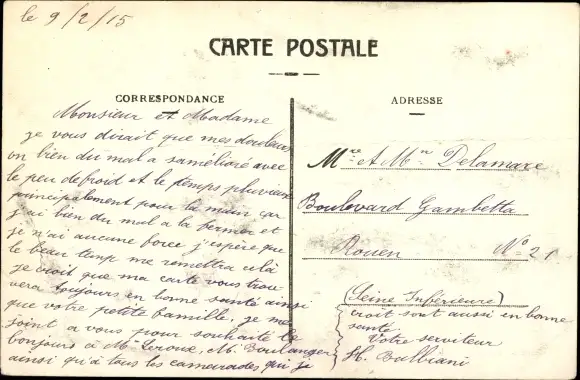 le 9/2/15
CARTE POSTALE
CORRESPONDANCE
Monsieur et Madame
je vous dirait que mes douleurs
on bien du mal a samélioré avec
le peu de froid et le temps pluvieux
principalement pour la main car
j'ai bien du mal a la fermer et
je n'ai aucune force j'espère que
le beau temp me remettra cela
je croit que ma carte vous trou-
vera toujours en bonne santé ainsi
que votre petite famille. je me
joint a vous pour souhaité le
bonjours à Mr Leroux, Mr Boulanger
ainsi qu'à tous les camarades, que je
croit sont aussi en bonne
santé
Votre serviteur
H. Balbiani
ADRESSE
Mre et Mm Delamare
Boulevard Gambetta
Rouen No 21
(Seine Inférieure)